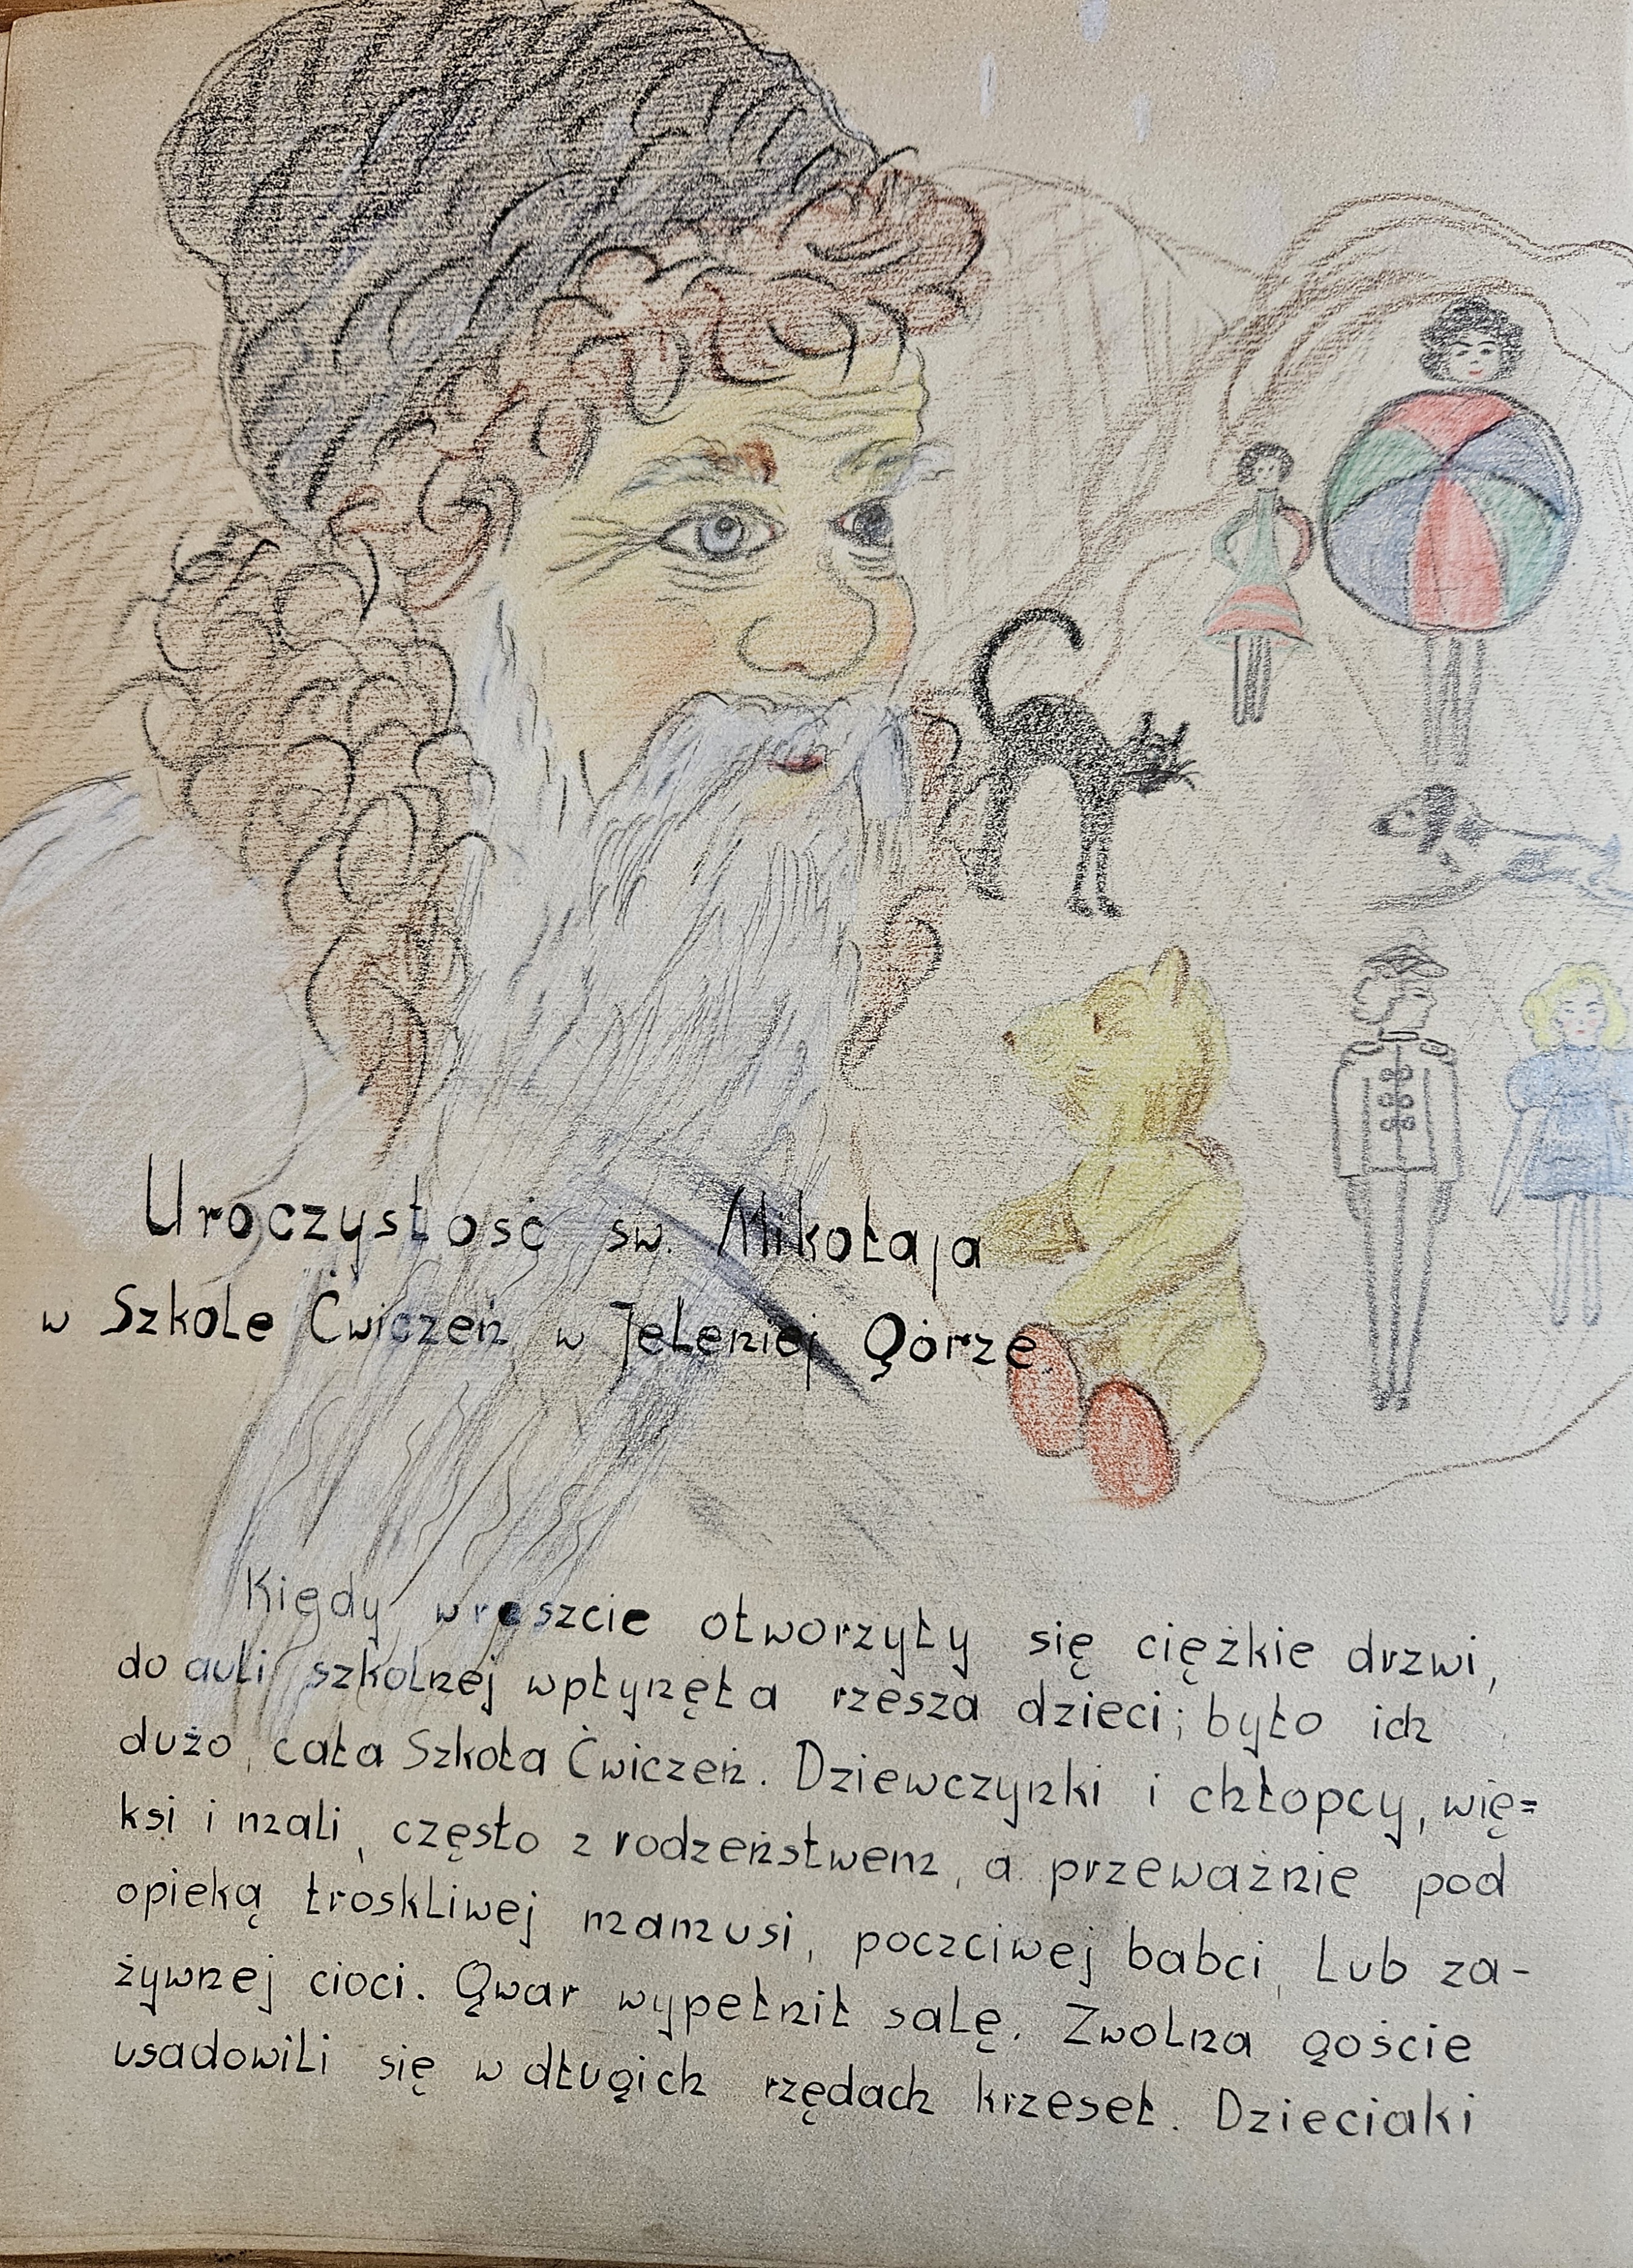 Uroczystość św. Mikołaja
w Szkole Ćwiczeń w Jeleniej Górze.
Kiedy wreszcie otworzyły się ciężkie drzwi,
do auli szkolnej wpłynęła rzesza dzieci; było ich
dużo, cała Szkoła Ćwiczeń. Dziewczynki i chłopcy, wię=
ksi i mali, często z rodzeństwem, a przeważnie pod
opieką troskliwej mamusi, poczciwej babci, lub za-
żywnej cioci. Gwar wypełnił salę. Zwolna goście
usadowili się w długich rzędach krzeseł. Dzieciaki